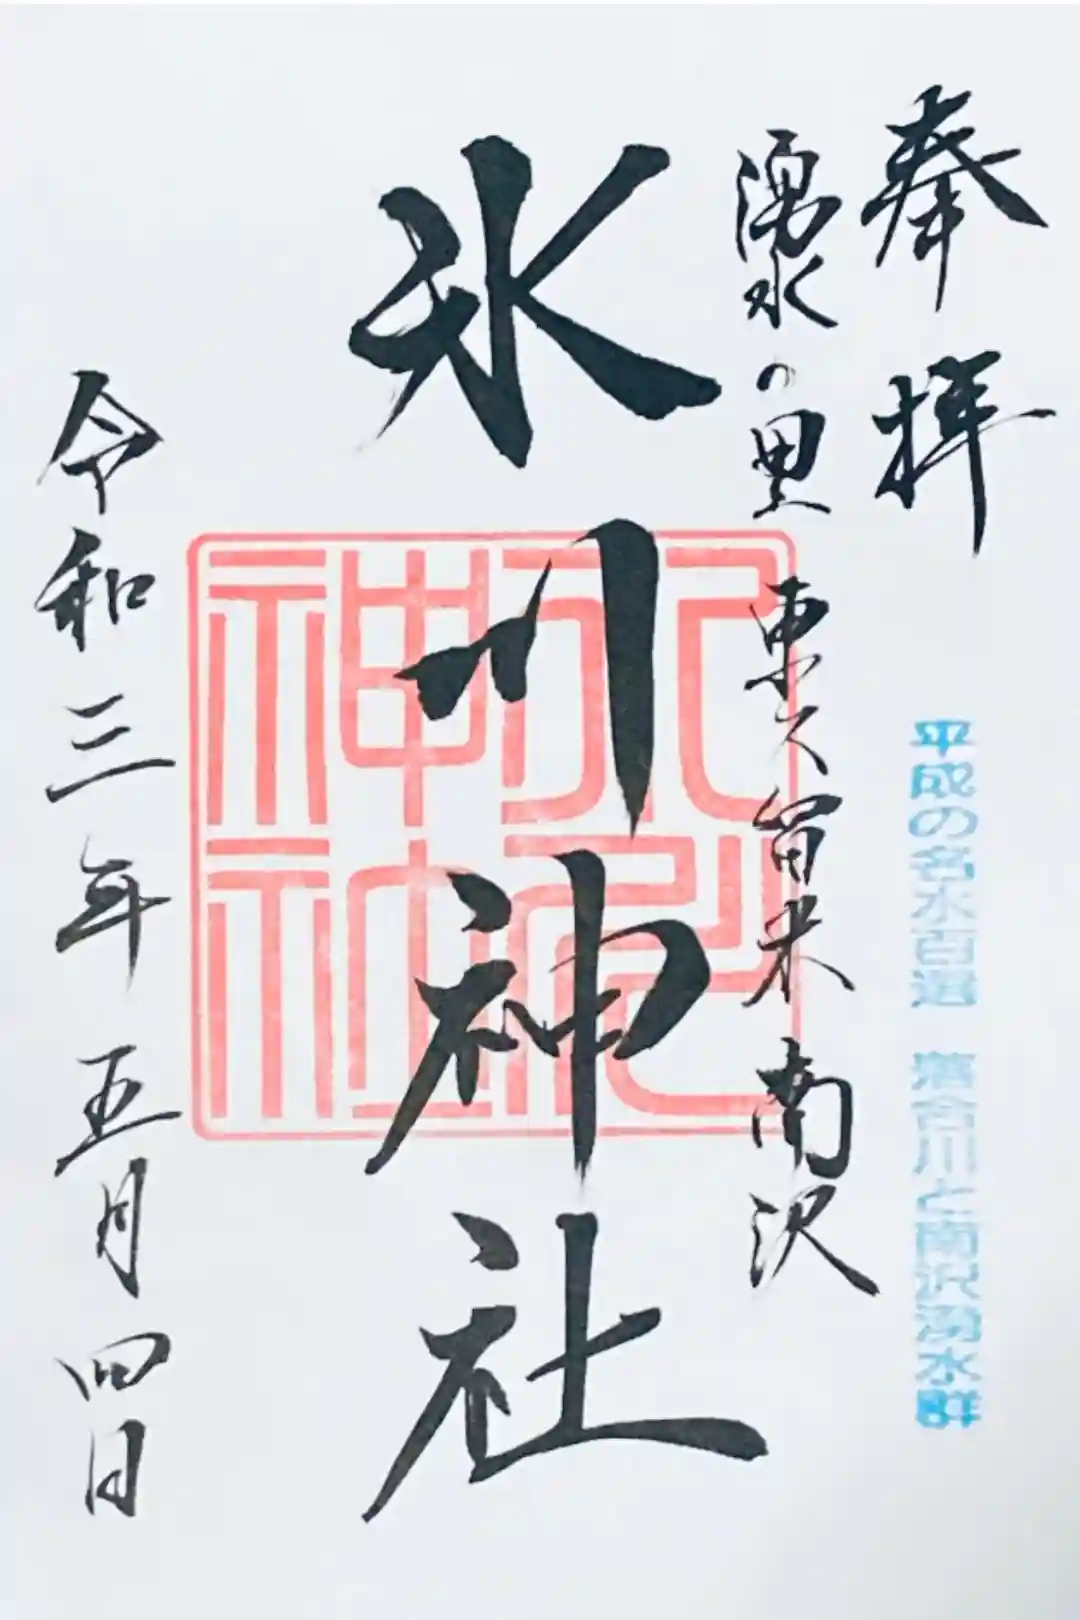 奉拝
平成の名水百選 落合川と南沢湧水群
湧水の里 東久留米 南沢
氷川神社
氷川神社
令和三年五月四日